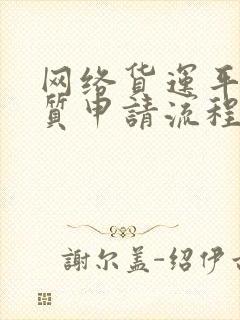 网络货运平
質申請流程
謝尔盖-紹伊古